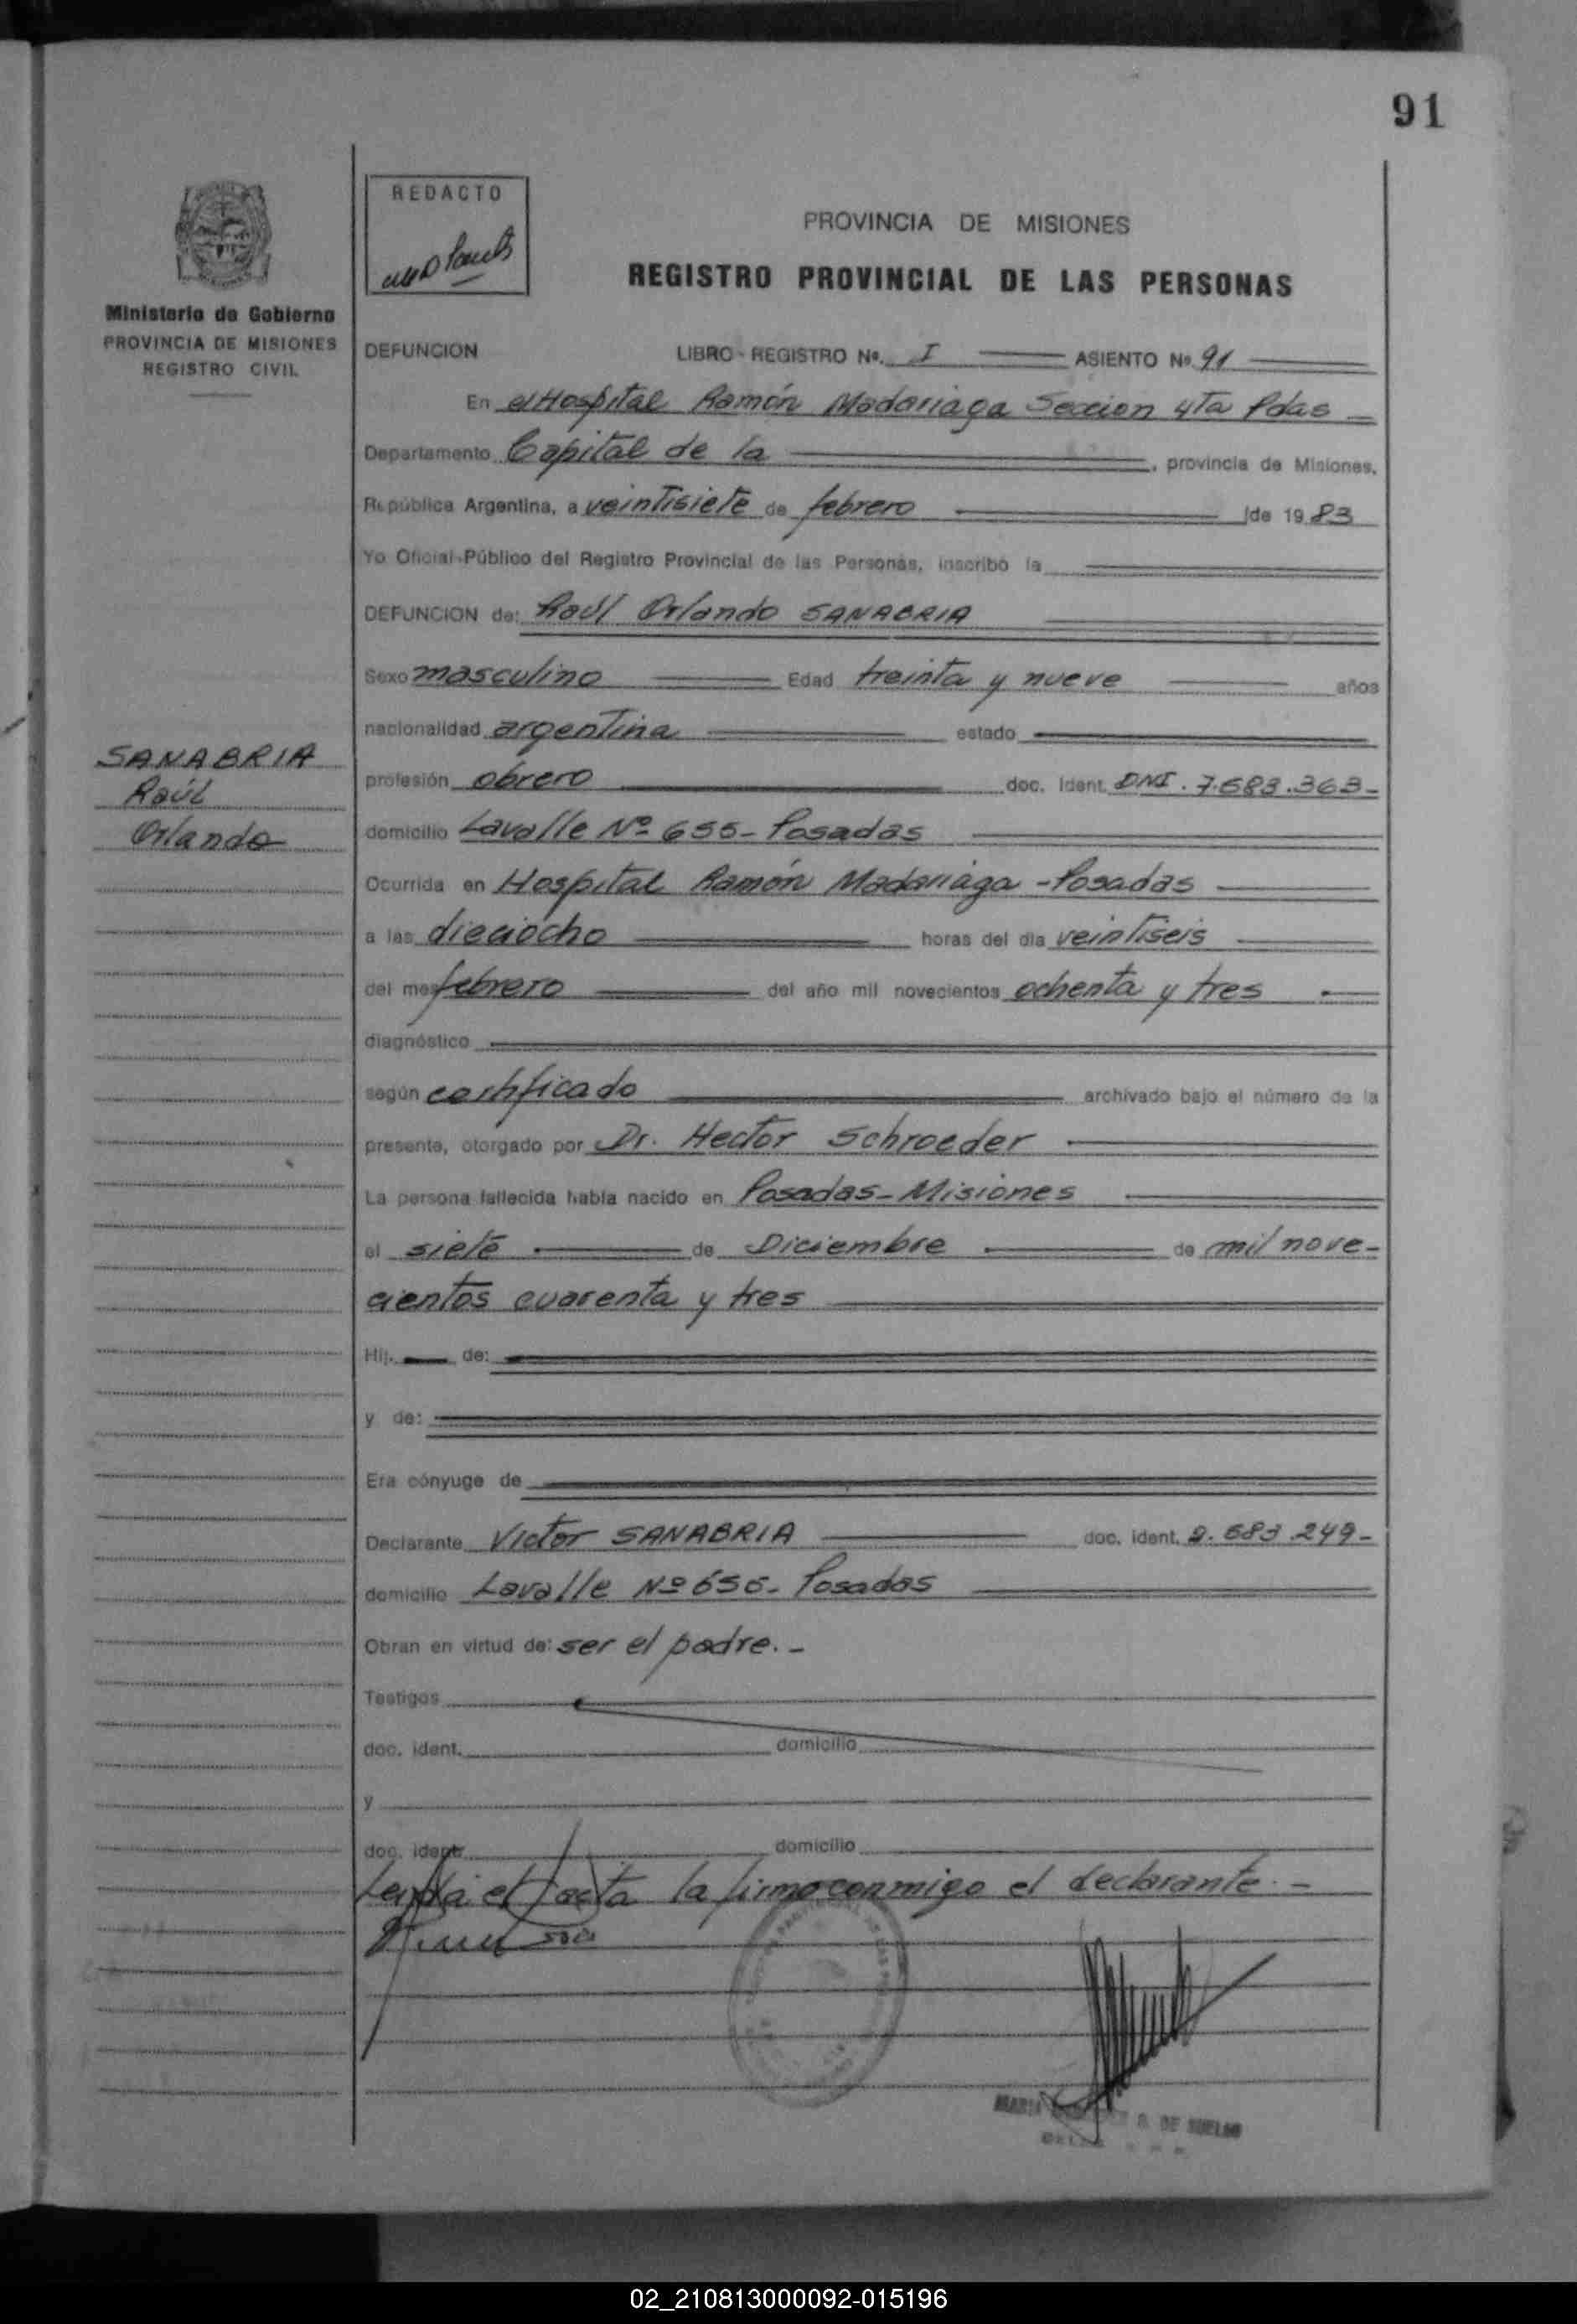 91
REDACTO
PROVINCIA DE MISIONES
REGISTRO PROVINCIAL DE LAS PERSONAS
Ministerio de Gobierno
PROVINCIA DE MISIONES
REGISTRO CIVIL
DEFUNCION LIBRO - REGISTRO Nº. I ASIENTO Nº 91
En el Hospital Ramón Madariaga Seccion 4ta Pdas
Departamento Capital de la , provincia de Misiones,
República Argentina, a veintisiete de febrero de 1983
Yo Oficial Público del Registro Provincial de las Personas, inscribo la
DEFUNCION de: Raúl Orlando SANABRIA
Sexo masculino Edad treinta y nueve años
nacionalidad argentina estado
SANABRIA
Raúl
Orlando
profesión obrero doc. ident. DNI. 7.683.363-
domicilio Lavalle Nº 655- Posadas
Ocurrida en Hospital Ramón Madariaga - Posadas
a las dieciocho horas del día veintiseis
del mes febrero del año mil novecientos ochenta y tres
diagnóstico
según certificado archivado bajo el número de la
presente, otorgado por Dr. Hector Schroeder
La persona fallecida había nacido en Posadas - Misiones
el siete de Diciembre de mil nove-
cientos cuarenta y tres
Hij. de:
y de:
Era cónyuge de
Declarante Victor SANABRIA doc. ident. 2.683.249-
domicilio Lavalle Nº 655- Posadas
Obran en virtud de: ser el padre.-
Testigos
doc. ident. domicilio
y
doc. ident. domicilio
Leida el acta la firma conmigo el declarante.-
MARIA DE SUELDO
02_210813000092-015196